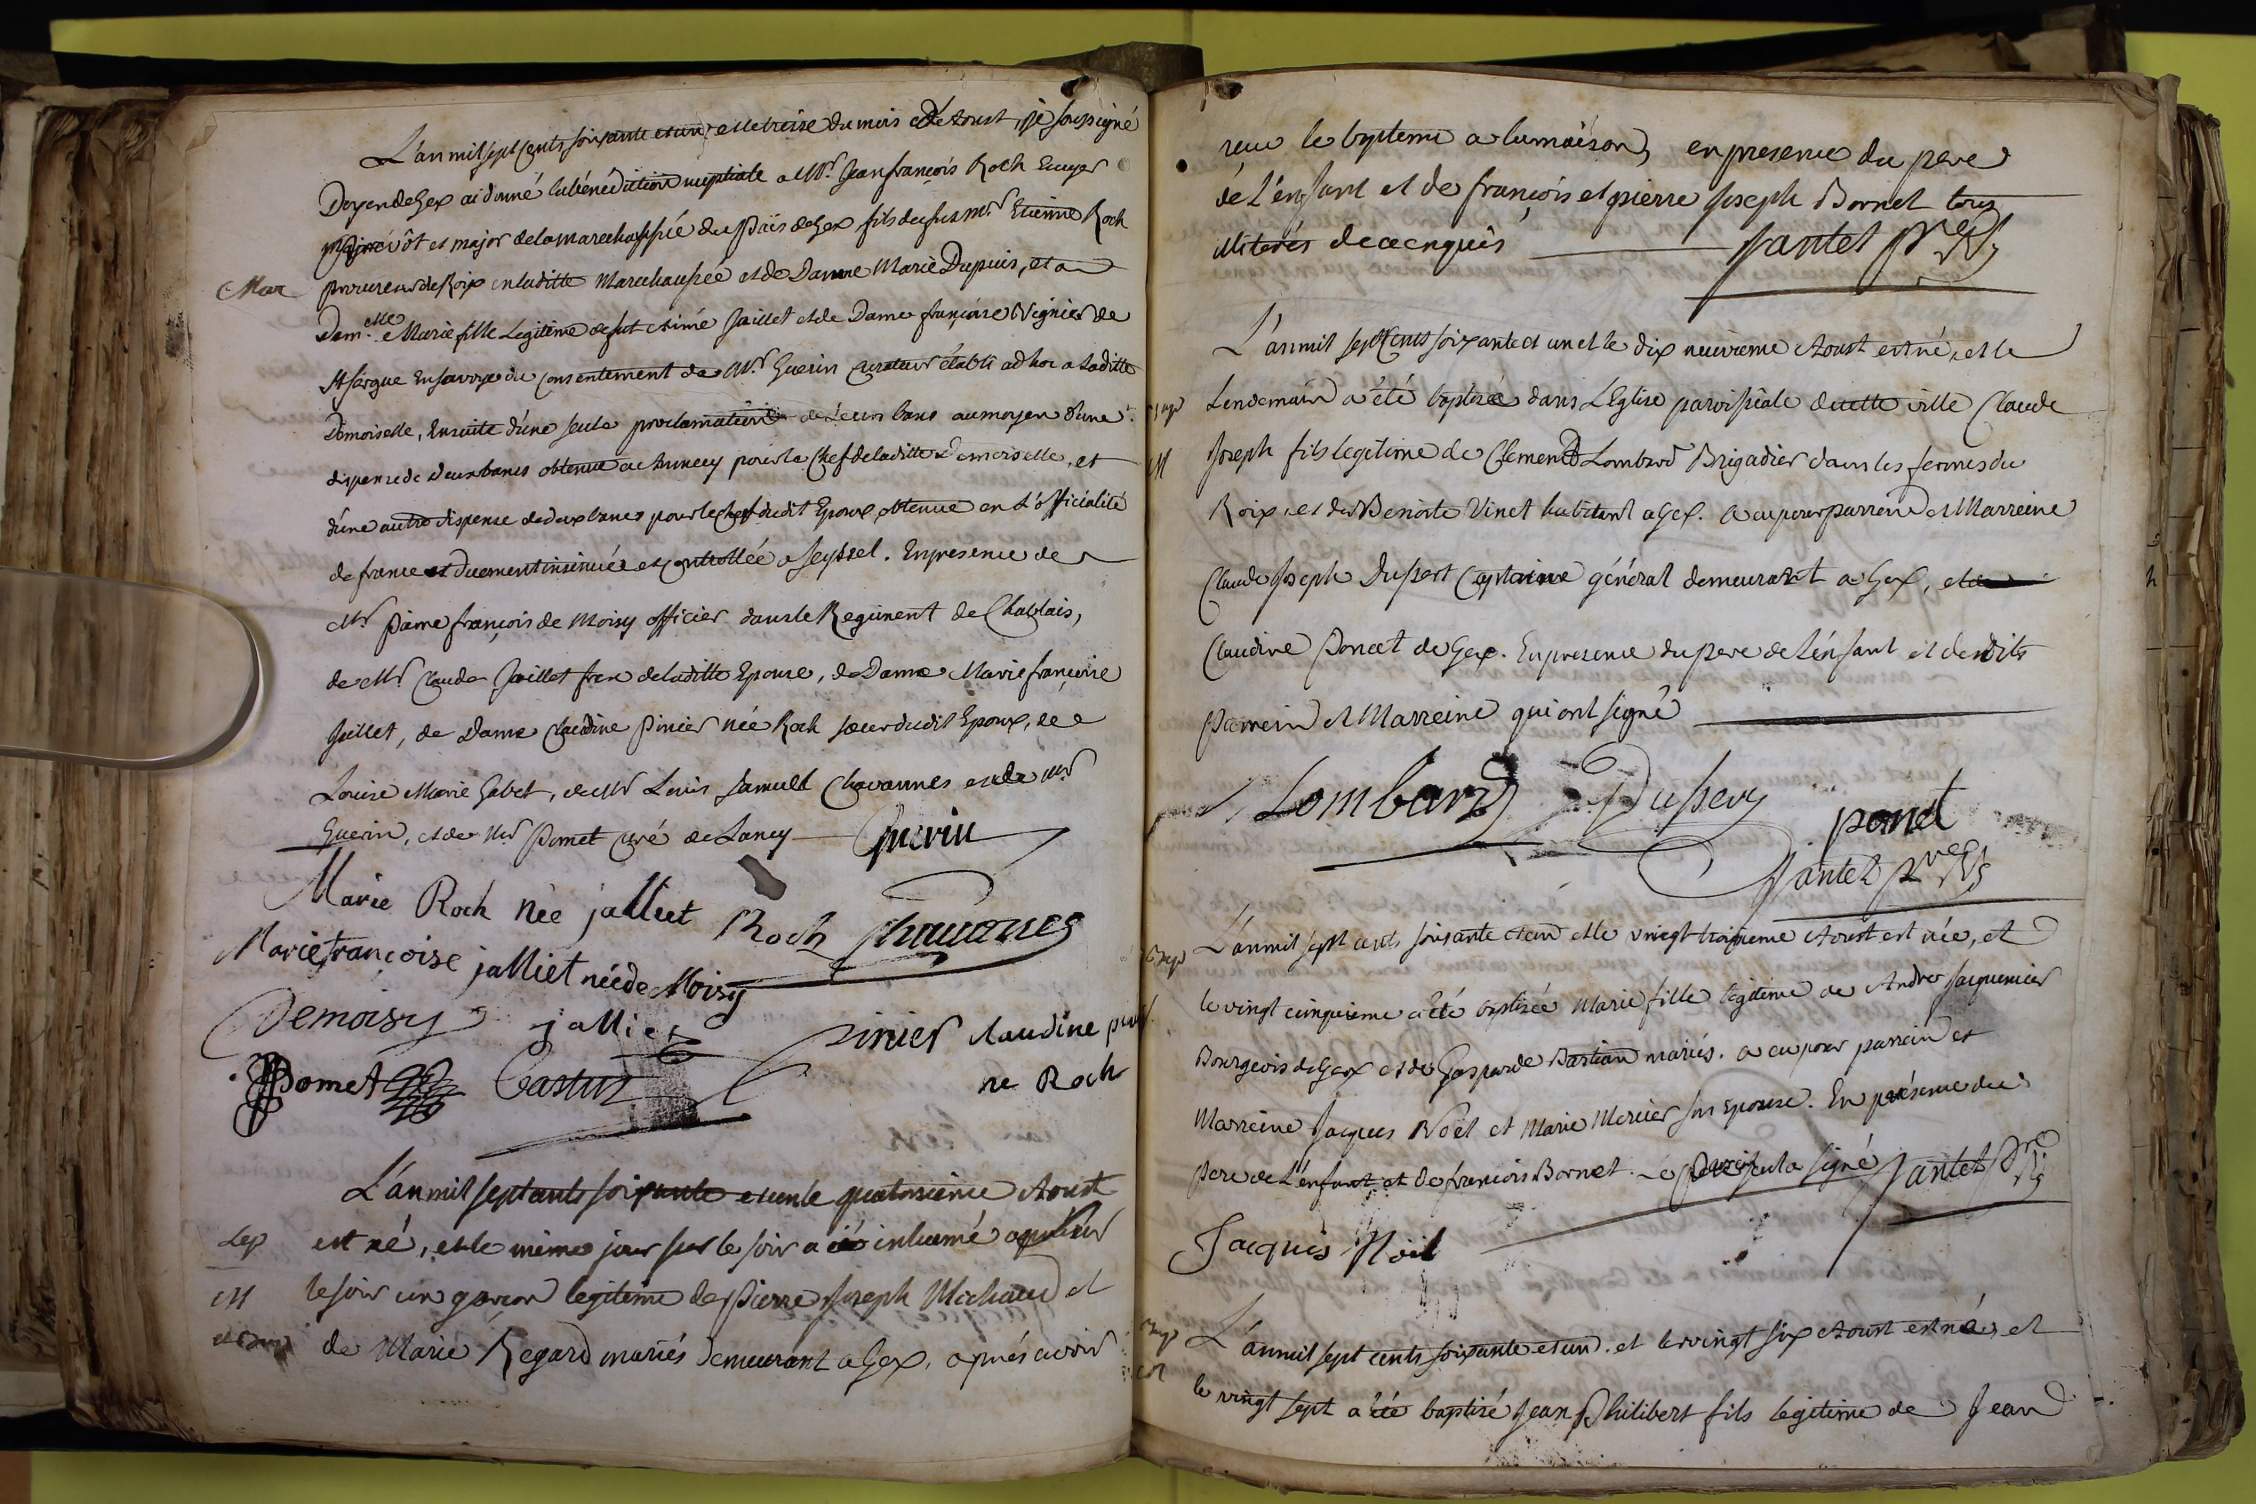 L'an mil sept cents soixante et un, et le treise du mois d'Aoust, je soussigné
Doyen de Gex ai donné la bénédiction nuptiale a Mr. Jean françois Roch Ecuyer
prévôt et major de la marechaussée du Païs de Gex fils de fut mr. Etienne Roch
Mar
procureur du Roix en laditte Marechaussée et de Dame Marie Dupuis, et a
Demelle Marie fille Legitime de fut Aimé Jaillet et de Dame françoise Vignier de
St Sergue En savoye du Consentement de Mr. Guerin Curateur établi ad hoc a laditte
Demoiselle, Ensuite d'une seule proclamation de Leurs bans au moyen d'une
dispense de deux bancs obtenue a Annecy pour le Chef de laditte Demoiselle, et
d'une autre dispense de deux bancs pour le chef dudit Epoux obtenue en L'officialité
de france et duement insinuée et controllée a Seyssel. En presence de
Mr. Pierre françois de Moisy officier dans le Regiment de Chablais,
de Mr. Claude Jaillet frere de laditte Epouse, de Dame Marie françoise
Jaillet, de Dame Claudine Pinier née Roch sœur dudit Epoux, de
Louise Marie Gabet, de Mr Louis Samuel Chavannes et de Mr
Guerin, et de Mr Pomet curé de Lancy Guerin
Marie Roch née jalliet Roch Chavanes
Marie françoise jalliet née de Moisy
Demoisy jalliet Pinier Claudine
Pomet Castin ne Roch
L'an mil sept cents soixante et un le quatorzieme Aoust
Sep est né, et le même jour sur le soir a été inhumé
M le soir un garçon legitime de Pierre Joseph Michaud et
de Marie Regard mariés demeurant a Gex, aprés avoir
reçu le bapteme a la maison, en presence du pere
de L'enfant et de françois et pierre Joseph Bornet tous
illiterés de ce enquis Jantet pre
L'an mil sept Cents soixante et un et le dix neuvieme Aoust est né, et le
Bap Lendemain a été baptisé dans L'Eglise paroissiale de cette ville Claude
M Joseph fils legitime de Clement Lombard Brigadier dans les fermes du
Roix, et de Benoite Vinet habitant a Gex. a eu pour parrein et Marreine
Claude Joseph Dupert Capitaine général demeurant a Gex, et
Claudine Poncet de Gex. En presence du pere de L'enfant et desdits
Parrein et Marreine qui ont signé
Lombard
Jantet
L'an mil sept cents soixante et un et le vingt troisieme Aoust est née, et
Bap
le vingt cinquieme a été baptisée Marie fille legitime de André Jaquenier
Bourgeois de Gex et de Gasparde Bastian mariés. a eu pour parrein et
Marreine Jacques Noël et Marie Mercier son Epouse. En présence du
pere de L'enfant et de francois Bornet. Le Parrein seul a signé Jantet
Jacques Noël
Bap L'an mil sept cents soixante et un. et le vingt six Aoust est né, et
M
le vingt sept a été baptisé Jean Philibert fils legitime de Jean